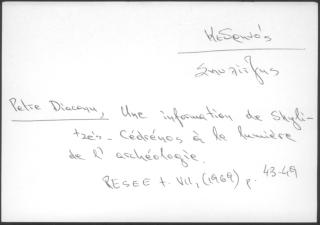 Κεδρηνός
Σκυλίτζης
Petre Diaconu, Une information de Skyli-
tzès - Cédrénos à la lumière
de l'archéologie.
RESEE t. VII, (1969) p. 43-49